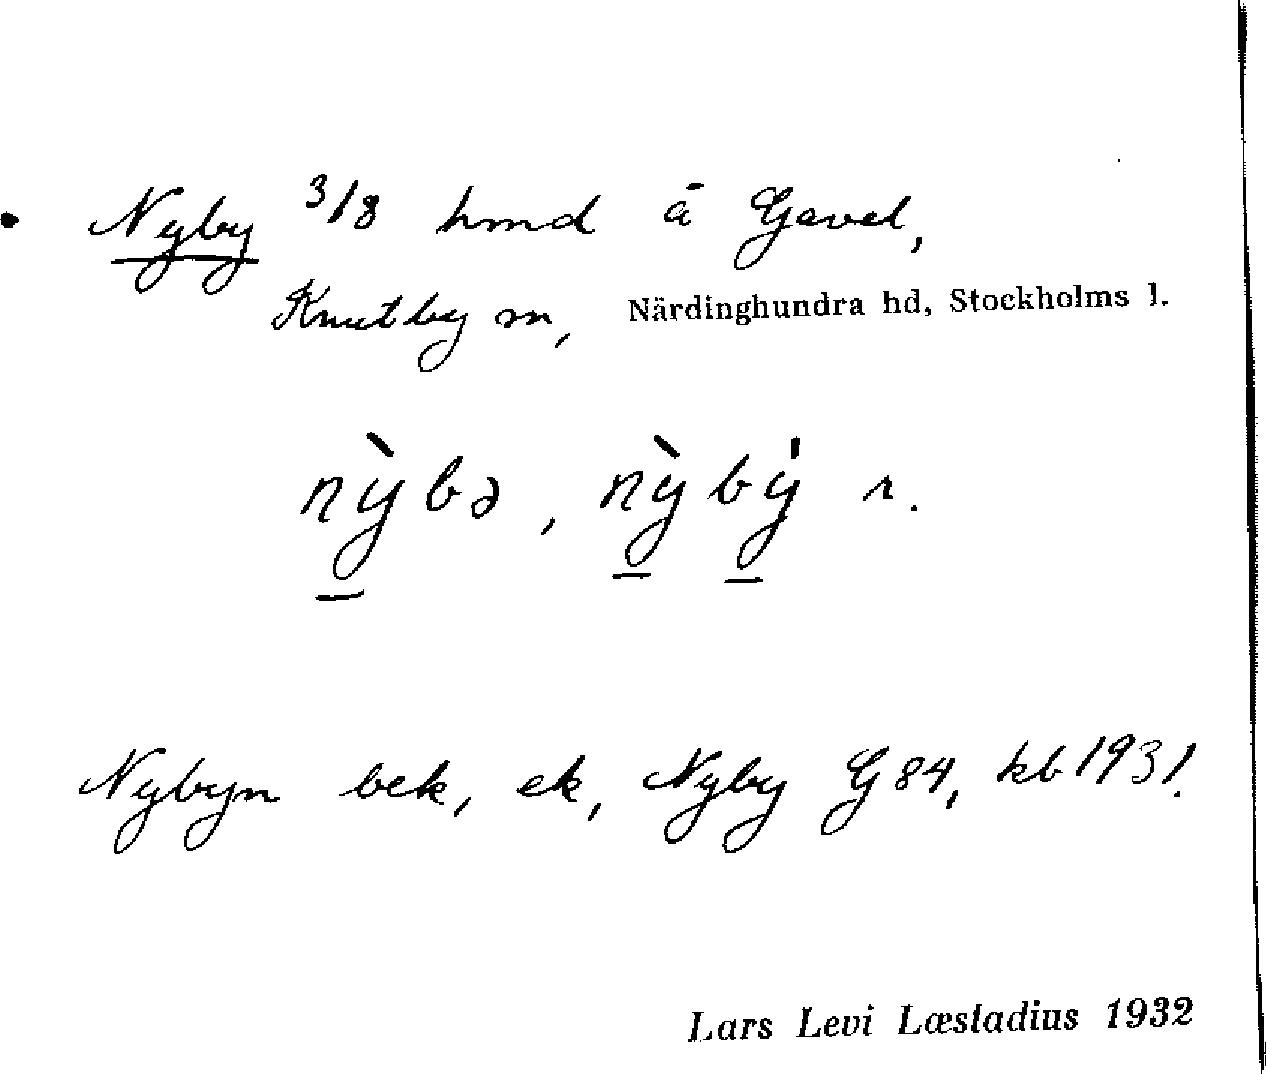 Nyby 3/8 hmd å Gavel,
Knutby sn, Närdinghundra hd, Stockholms l.
nỳ̠bə, nỳ̠bý̠ r.
Nybyn bek, ek, Nyby G 84, kb 1931.
Lars Levi Læstadius 1932